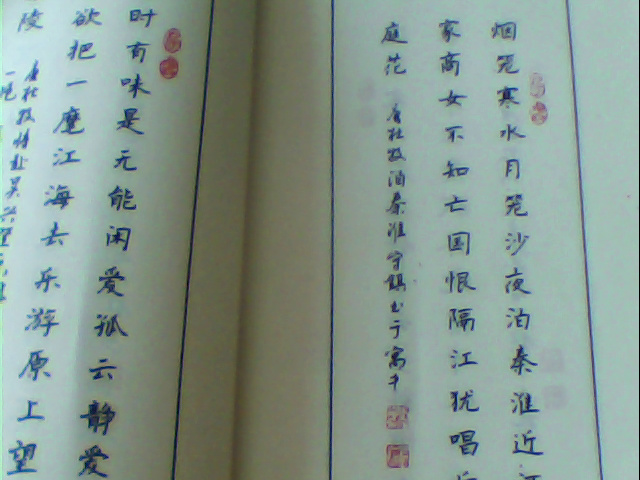 烟笼寒水月笼沙夜泊秦淮近
家商女不知亡国恨隔江犹唱
庭花 唐杜牧泊秦淮
时有味是无能闲爱孤云静爱
欲把一麾江海去乐游原上望
陵
唐杜牧将赴吴兴登